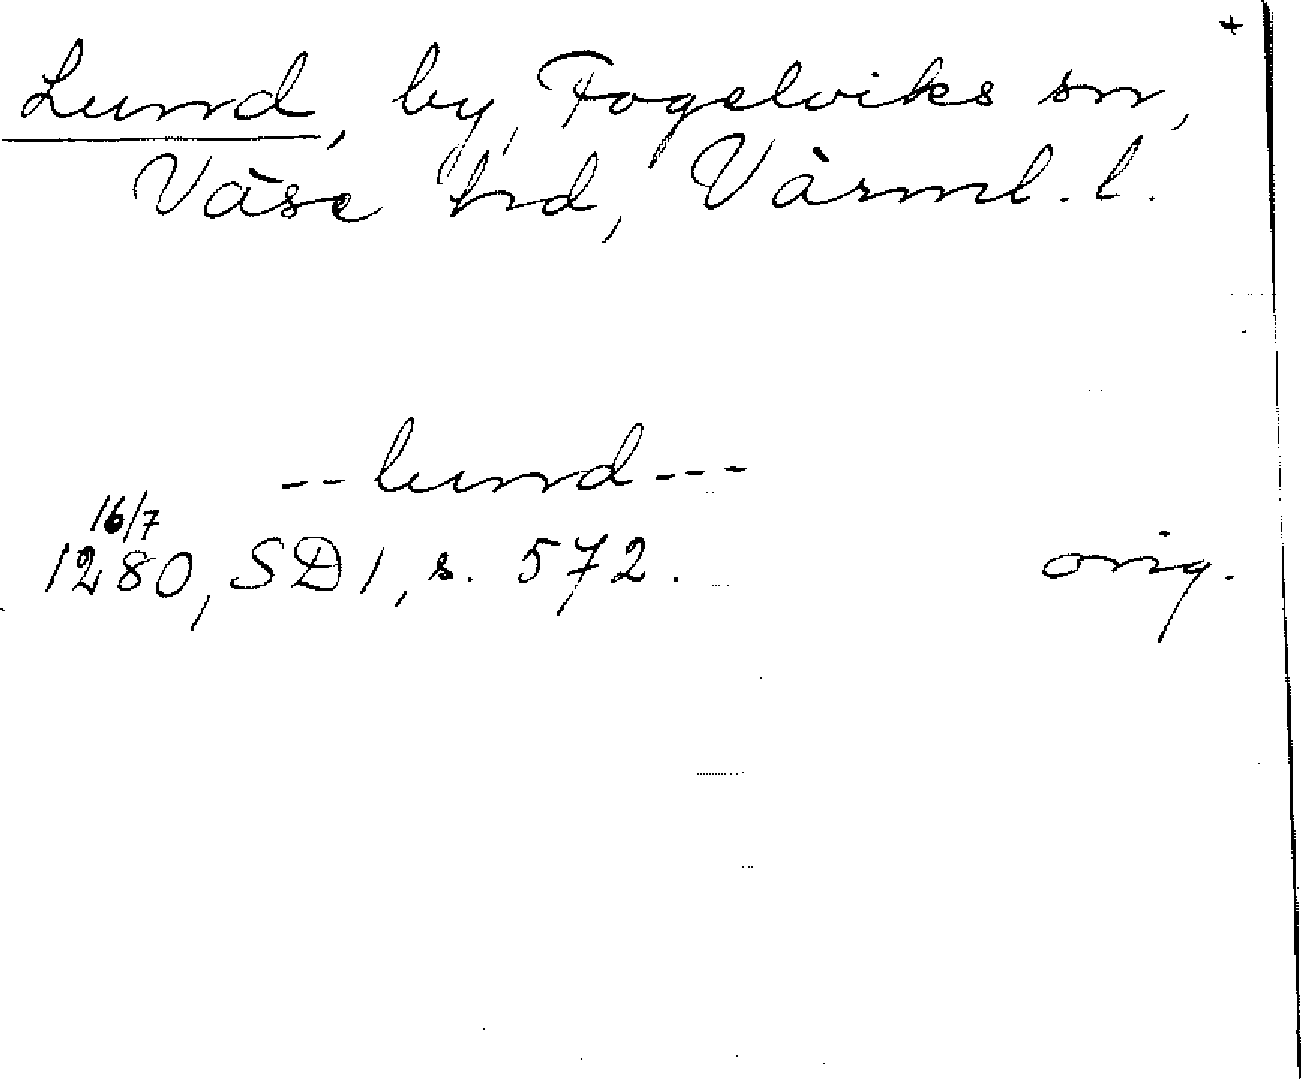 +
Lund, by, Fogelviks sn,
Väse hd, Värml. l.
-- lund ---
16/7
1280, SD 1, s. 572. orig.